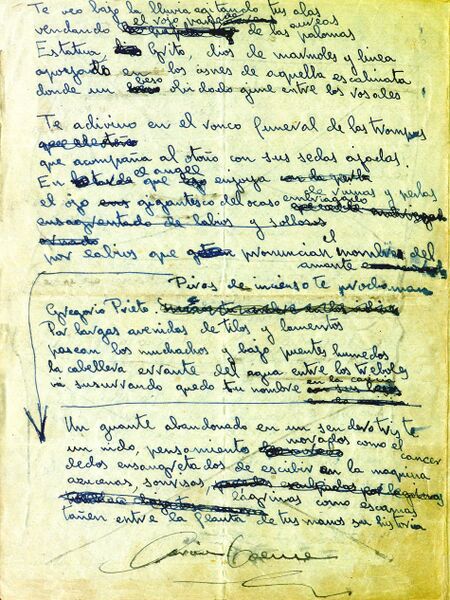 Te veo bajo la lluvia agitando tus alas
vendando el rojo áureas de las palomas
Estatua Grito, dios de marmoles y linea
apoyado en los cisnes de aquella escalinata
donde un beso olvidado gime entre los rosales
Te adivino en el ronco funeral de las trompas
que acompaña al otoño con sus sedas ajadas.
En que el angel enjoya de rumas y perlas
el ojo gigantesco del ocaso
ensangrentado de labios y sollozos
por labios que pronuncian el nombre del
amante
Piras de incienso te proclaman
Gregorio Prieto.
Por largas avenidas de tilos y lamentos
pasean los muchachos y bajo puentes humedos
la cabellera errante del agua entre los treboles
va susurrando quedo tu nombre
Un guante abandonado en un sendero triste
un nido, pensamiento morados como el cancer
dedos ensangretados de escibir en la maquina
azucenas, sonrisas, lágrimas como escamas
tañen entre la flauta de tus manos su historia